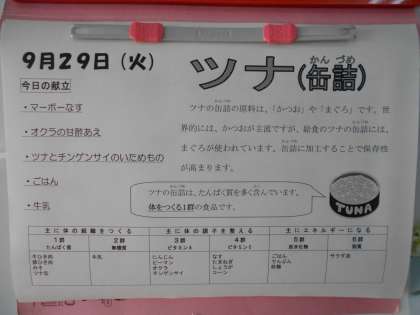 9月29日（火）
今日の献立
・マーボーなす
・オクラの甘酢あえ
・ツナとチンゲンサイのいためもの
・ごはん
・牛乳
ツナ(缶詰)
かん づめ
ツナの缶詰の原料は、「かつお」や「まぐろ」です。世
界的には、かつおが主流ですが、給食のツナの缶詰には、
まぐろが使われています。缶詰に加工することで保存性
が高まります。
ツナの缶詰は、たんぱく質を多く含んでいます。
体をつくる1群の食品です。
TUNA
主に体の組織をつくる 主に体の調子を整える 主にエネルギーになる
1群 2群 3群 4群 5群 6群
たんぱく質 無機質 ビタミンA ビタミンC 炭水化物 脂質
牛ひき肉 牛乳 にんじん なす ごはん サラダ油
豚ひき肉 ピーマン たまねぎ でんぷん
みそ オクラ しょうが 砂糖
ツナ缶 チンゲンサイ コーン